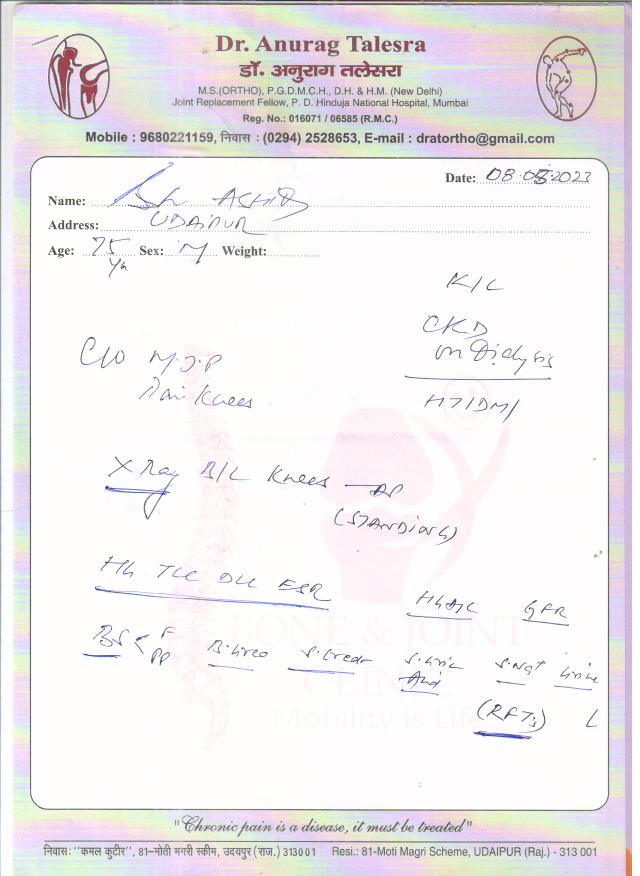 Dr. Anurag Talesra
डॉ. अनुराग तलेसरा
M.S.(ORTHO), P.G.D.M.C.H., D.H. & H.M. (New Delhi)
Joint Replacement Fellow, P. D. Hinduja National Hospital, Mumbai
Reg. No.: 016071 / 06585 (R.M.C.)
Mobile : 9680221159, निवास : (0294) 2528653, E-mail : dratortho@gmail.com
Date: 08.05.2023
Name:
Address: UDAIPUR
Age: 75 Yr Sex: M Weight:
K/C
CKD
on Dialysis
HT/DM/
C/O M.J.P
Pain Knees
X Ray B/L Knees — AP
(STANDING)
Hb TLC DLC ESR
HbA1C GFR
BS < F
PP
B.Urea S.Creat S.Uric Acid S.Na+ Urine
(RFTs)
BONE & JOINT
CLINIC
Mobility is Life
"Chronic pain is a disease, it must be treated"
निवास: "कमल कुटीर", 81-मोती मगरी स्कीम, उदयपुर (राज.) 313001 Resi.: 81-Moti Magri Scheme, UDAIPUR (Raj.) - 313 001